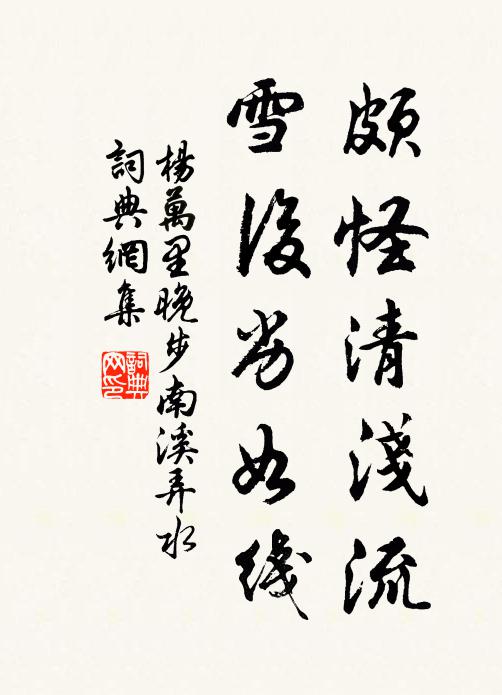 頗怪清淺流
雪後劣如綫
楊萬里晚步南溪弄水
詞典網集
詞典网印